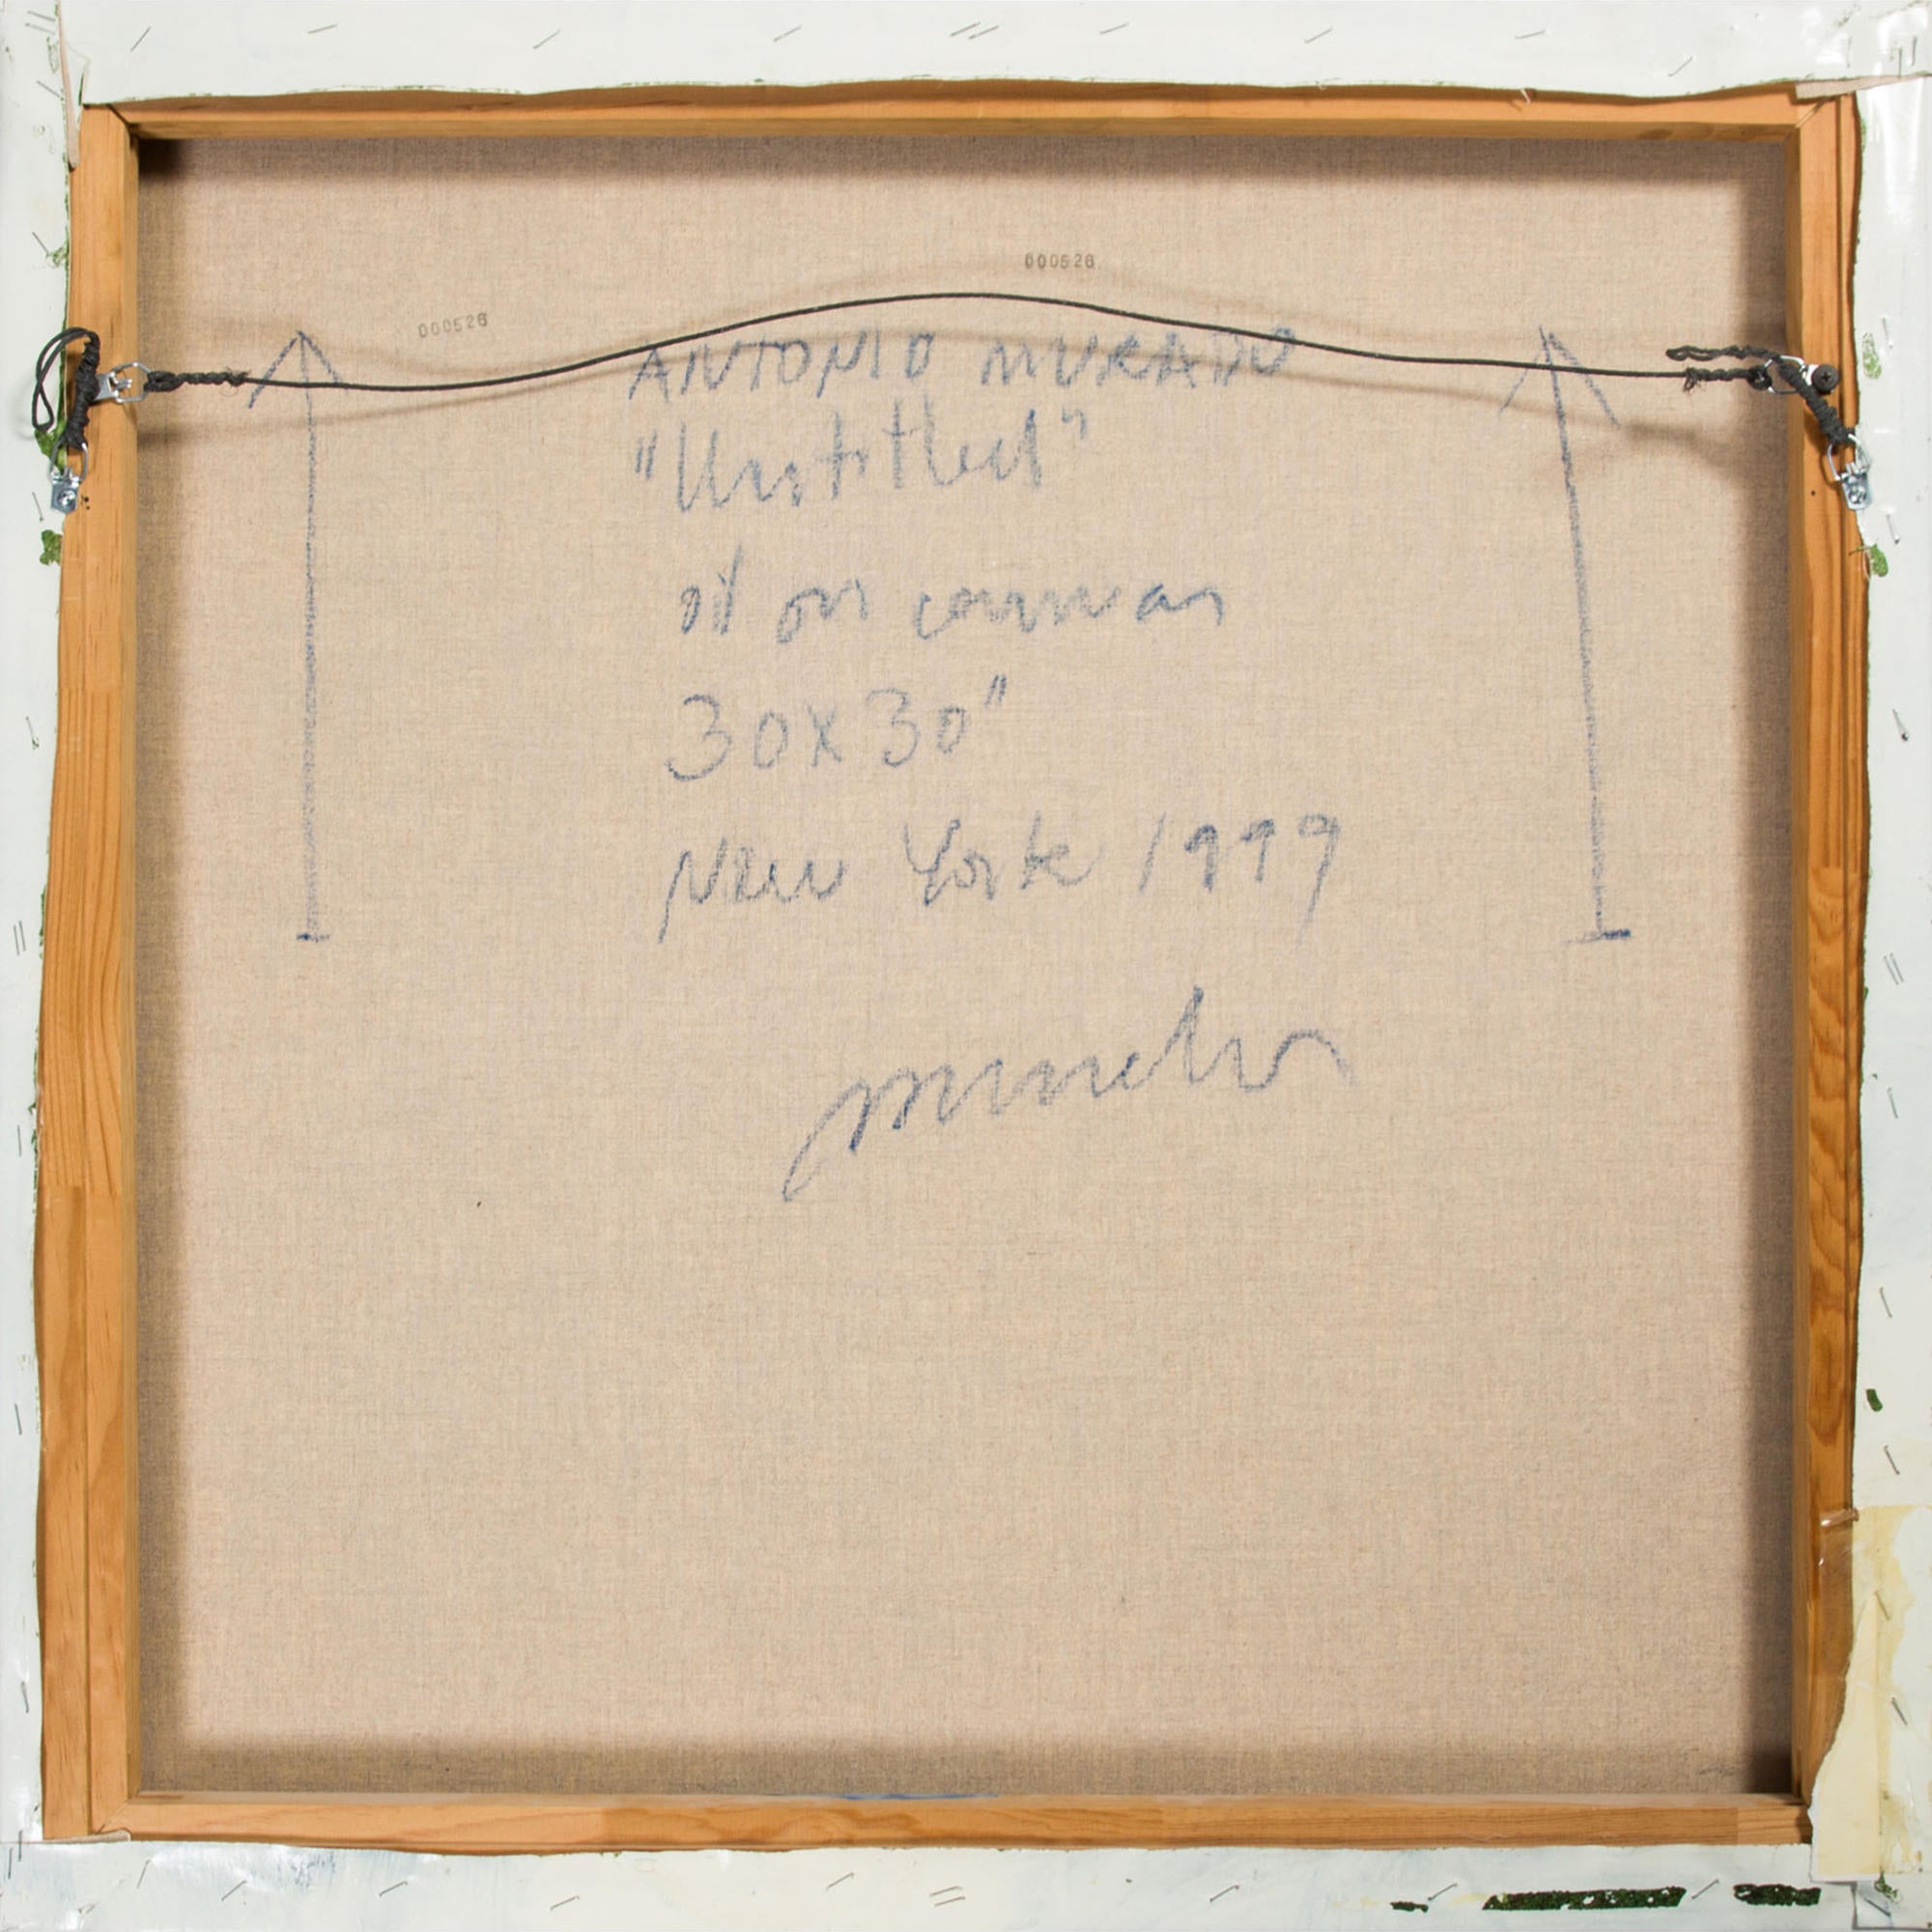 000526
000526
ANTONIO MURADO
"Untitled"
oil on canvas
30x30"
New York 1999
Murado